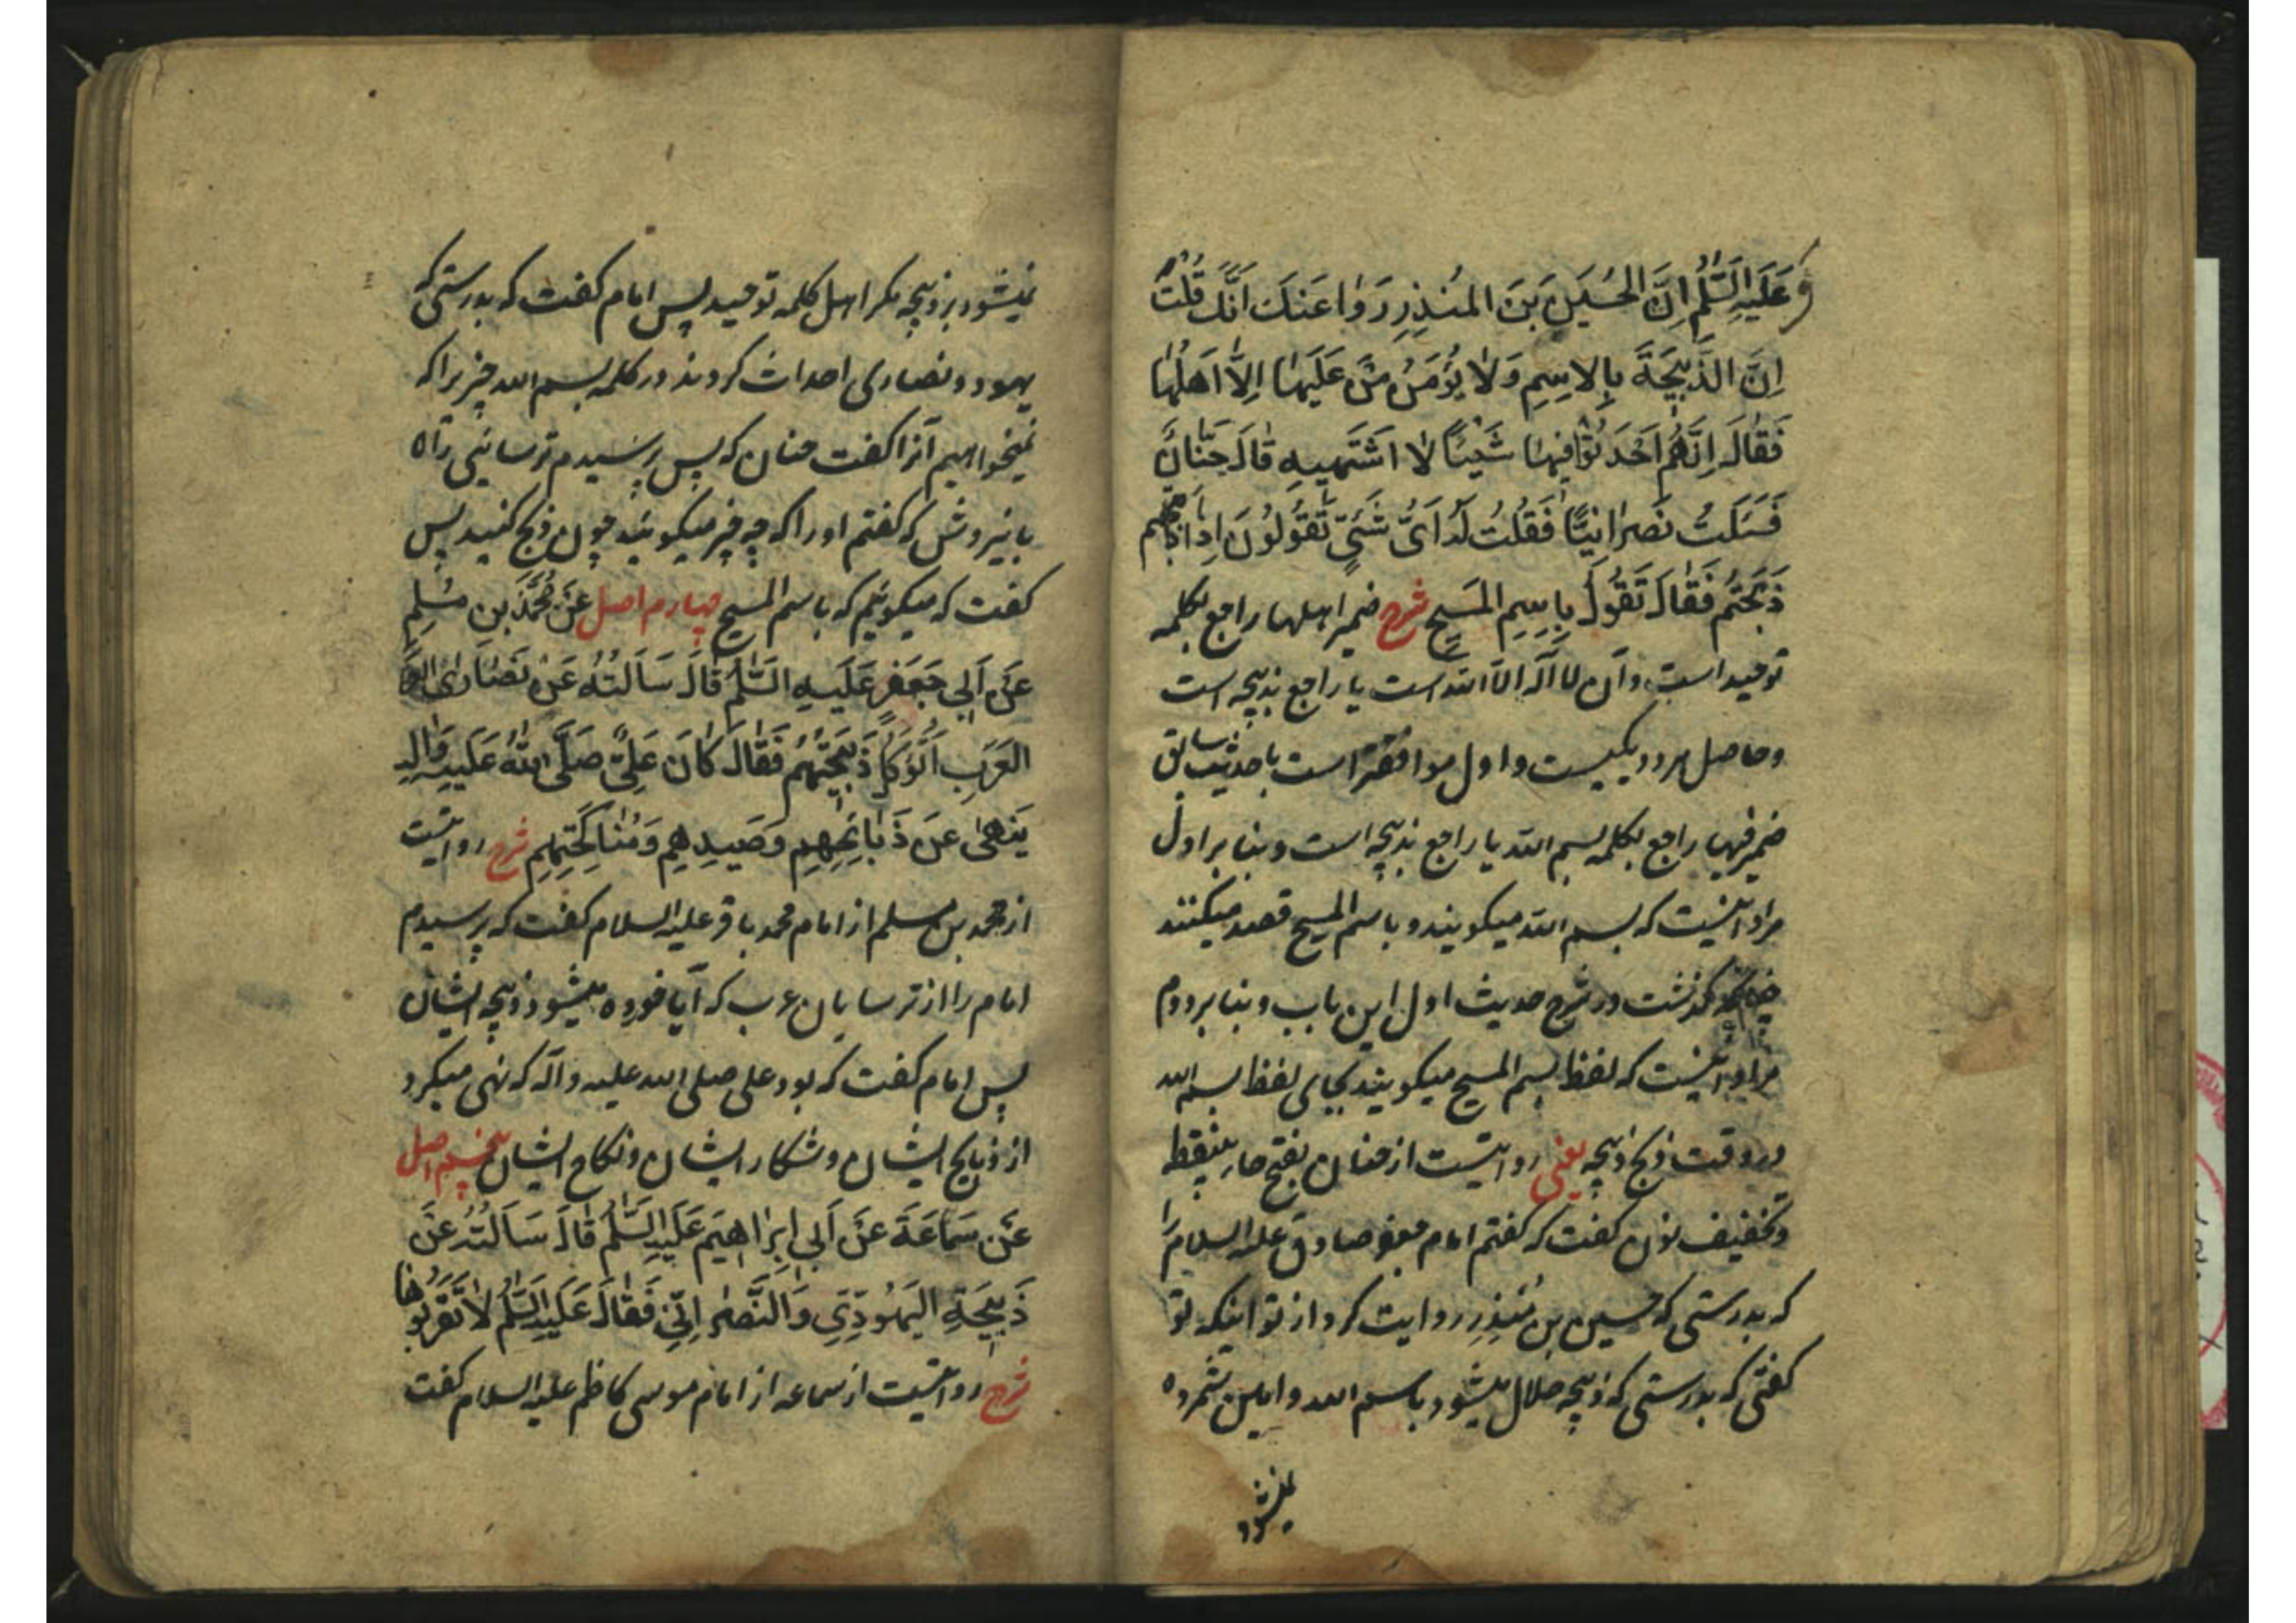 عَلَیْهِ السَّلٰمُ اِنَّ الحُسَیْنَ بْنَ المُنْذِرِ رَوٰا عَنْكَ اَنَّكَ قُلْتَ
اِنَّ الذَّبِیْحَةَ بِالاِسْمِ وَلاٰ یُؤْمَنُ عَلَیْهٰا اِلّٰا اَهْلُهٰا
فَقٰالَ اِنَّهُمْ اَحْدَثُوْا فِیهٰا شَیْئًا لاٰ اَشْتَهِیهِ قٰالَ حَنٰانٌ
فَسَئَلْتُ نَصْرٰانِیًّا فَقُلْتُ لَهُ اَیُّ شَیْءٍ تَقُوْلُوْنَ اِذٰا
ذَبَحْتُمْ فَقٰالَ نَقُولُ بِاِسْمِ المَسِیْحِ شرح ضمیر اهلها راجع بکلمه
توحید است و آن لا اله الا الله است یا راجع بذبیحه است
وحاصل هر دو یکیست و اول موافقتر است با حدیث سابق
ضمیر فیها راجع بکلمه بسم الله یا راجع بذبیحه است و بنا بر اول
مراد اینست که بسم الله میکویند و باسم المسیح قصد میکنند
چنانچه کذشت در شرح حدیث اول این باب و بنا بر دوم
مراد اینست که لفظ بسم المسیح میکویند بجای لفظ بسم الله
در وقت ذبح ذبیحه یعنی روایتست از حنان بفتح حاء بینقطه
و تخفیف نون کفت که کفتم امام جعفر صادق علیه السلام را
که بدرستی که حسین بن مُنذِر روایت کرد از تو اینکه تو
کفتی که بدرستی که ذبیحه حلال میشود باسم الله و امین شمرده
نمیشود
نمیشود بر ذبیحه مکر اهل کلمه توحید پس امام کفت که بدرستی که
یهود و نصاری احداث کردند در کلمه بسم الله چیزی را که
نمیخواهیم آنرا کفت حنان که پس پرسیدم ترسائی را
کفتم او را که چه چیز میکوئید چون ذبح کنید پس
کفت که میکوئیم که باسم المسیح چهارم اصل عَنْ مُحَمَّدِ بْنِ مُسْلِمٍ
عَنْ اَبِی جَعْفَرٍ عَلَیْهِ السَّلٰمُ قٰالَ سَاَلْتُهُ عَنْ نَصٰارَیٰ
العَرَبِ اَتُؤْكَلُ ذَبِیْحَتُهُمْ فَقٰالَ كٰانَ عَلِیٌّ صَلَّی اللّٰهُ عَلَیْهِ وَاٰلِهِ
یَنْهیٰ عَنْ ذَبٰایِحِهِمْ وَصَیْدِهِمْ وَمُنٰاكَحَتِهِمْ شرح روایتست
از محمد بن مسلم از امام محمد باقر علیه السلام کفت که پرسیدم
امام را از ترسایان عرب که آیا خورده میشود ذبیحه ایشان
پس امام کفت که بود علی صلی الله علیه و آله که نهی میکرد
از ذبایح ایشان و شکار ایشان و نکاح ایشان پنجم اصل
عَنْ سَمَاعَةَ عَنْ اَبِی اِبْرٰاهِیْمَ عَلَیْهِ السَّلٰمُ قٰالَ سَاَلْتُهُ عَنْ
ذَبِیْحَةِ الیَهُوْدِیِّ وَالنَّصْرٰانِیِّ فَقٰالَ عَلَیْهِ السَّلٰمُ لاٰ تَقْرَبُوْهٰا
شرح روایتست از سماعه از امام موسی کاظم علیه السلام کفت